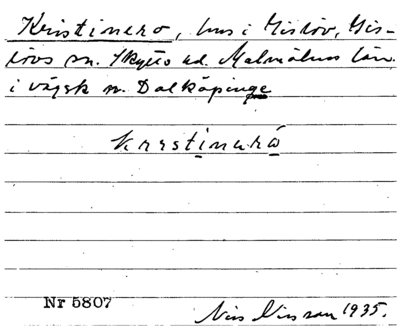 Kristinero, hus i Gislöv, Gis-
lövs sn. Skytts hd. Malmöhus län.
i vägsk n. Dalköpinge
krestinarå
Nr 5807
Nils Nilsson 1935.